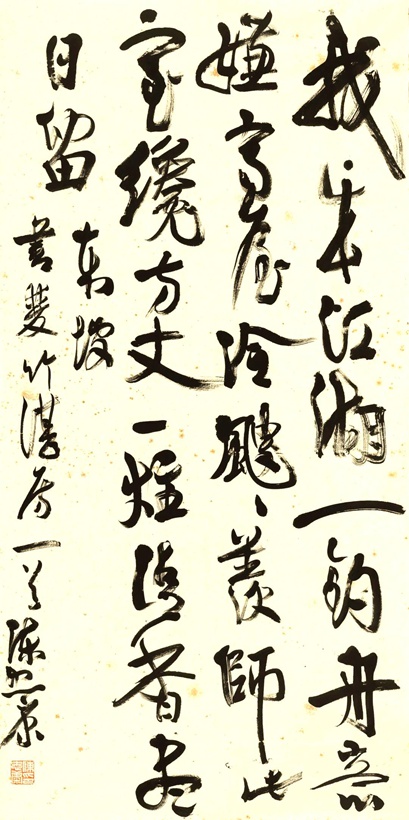 我本江湖一釣舟意
嫌高屋冷颼〻羨師此
室纔方丈一炷清香盡
日留
東坡
書雙竹湛房一首 陳